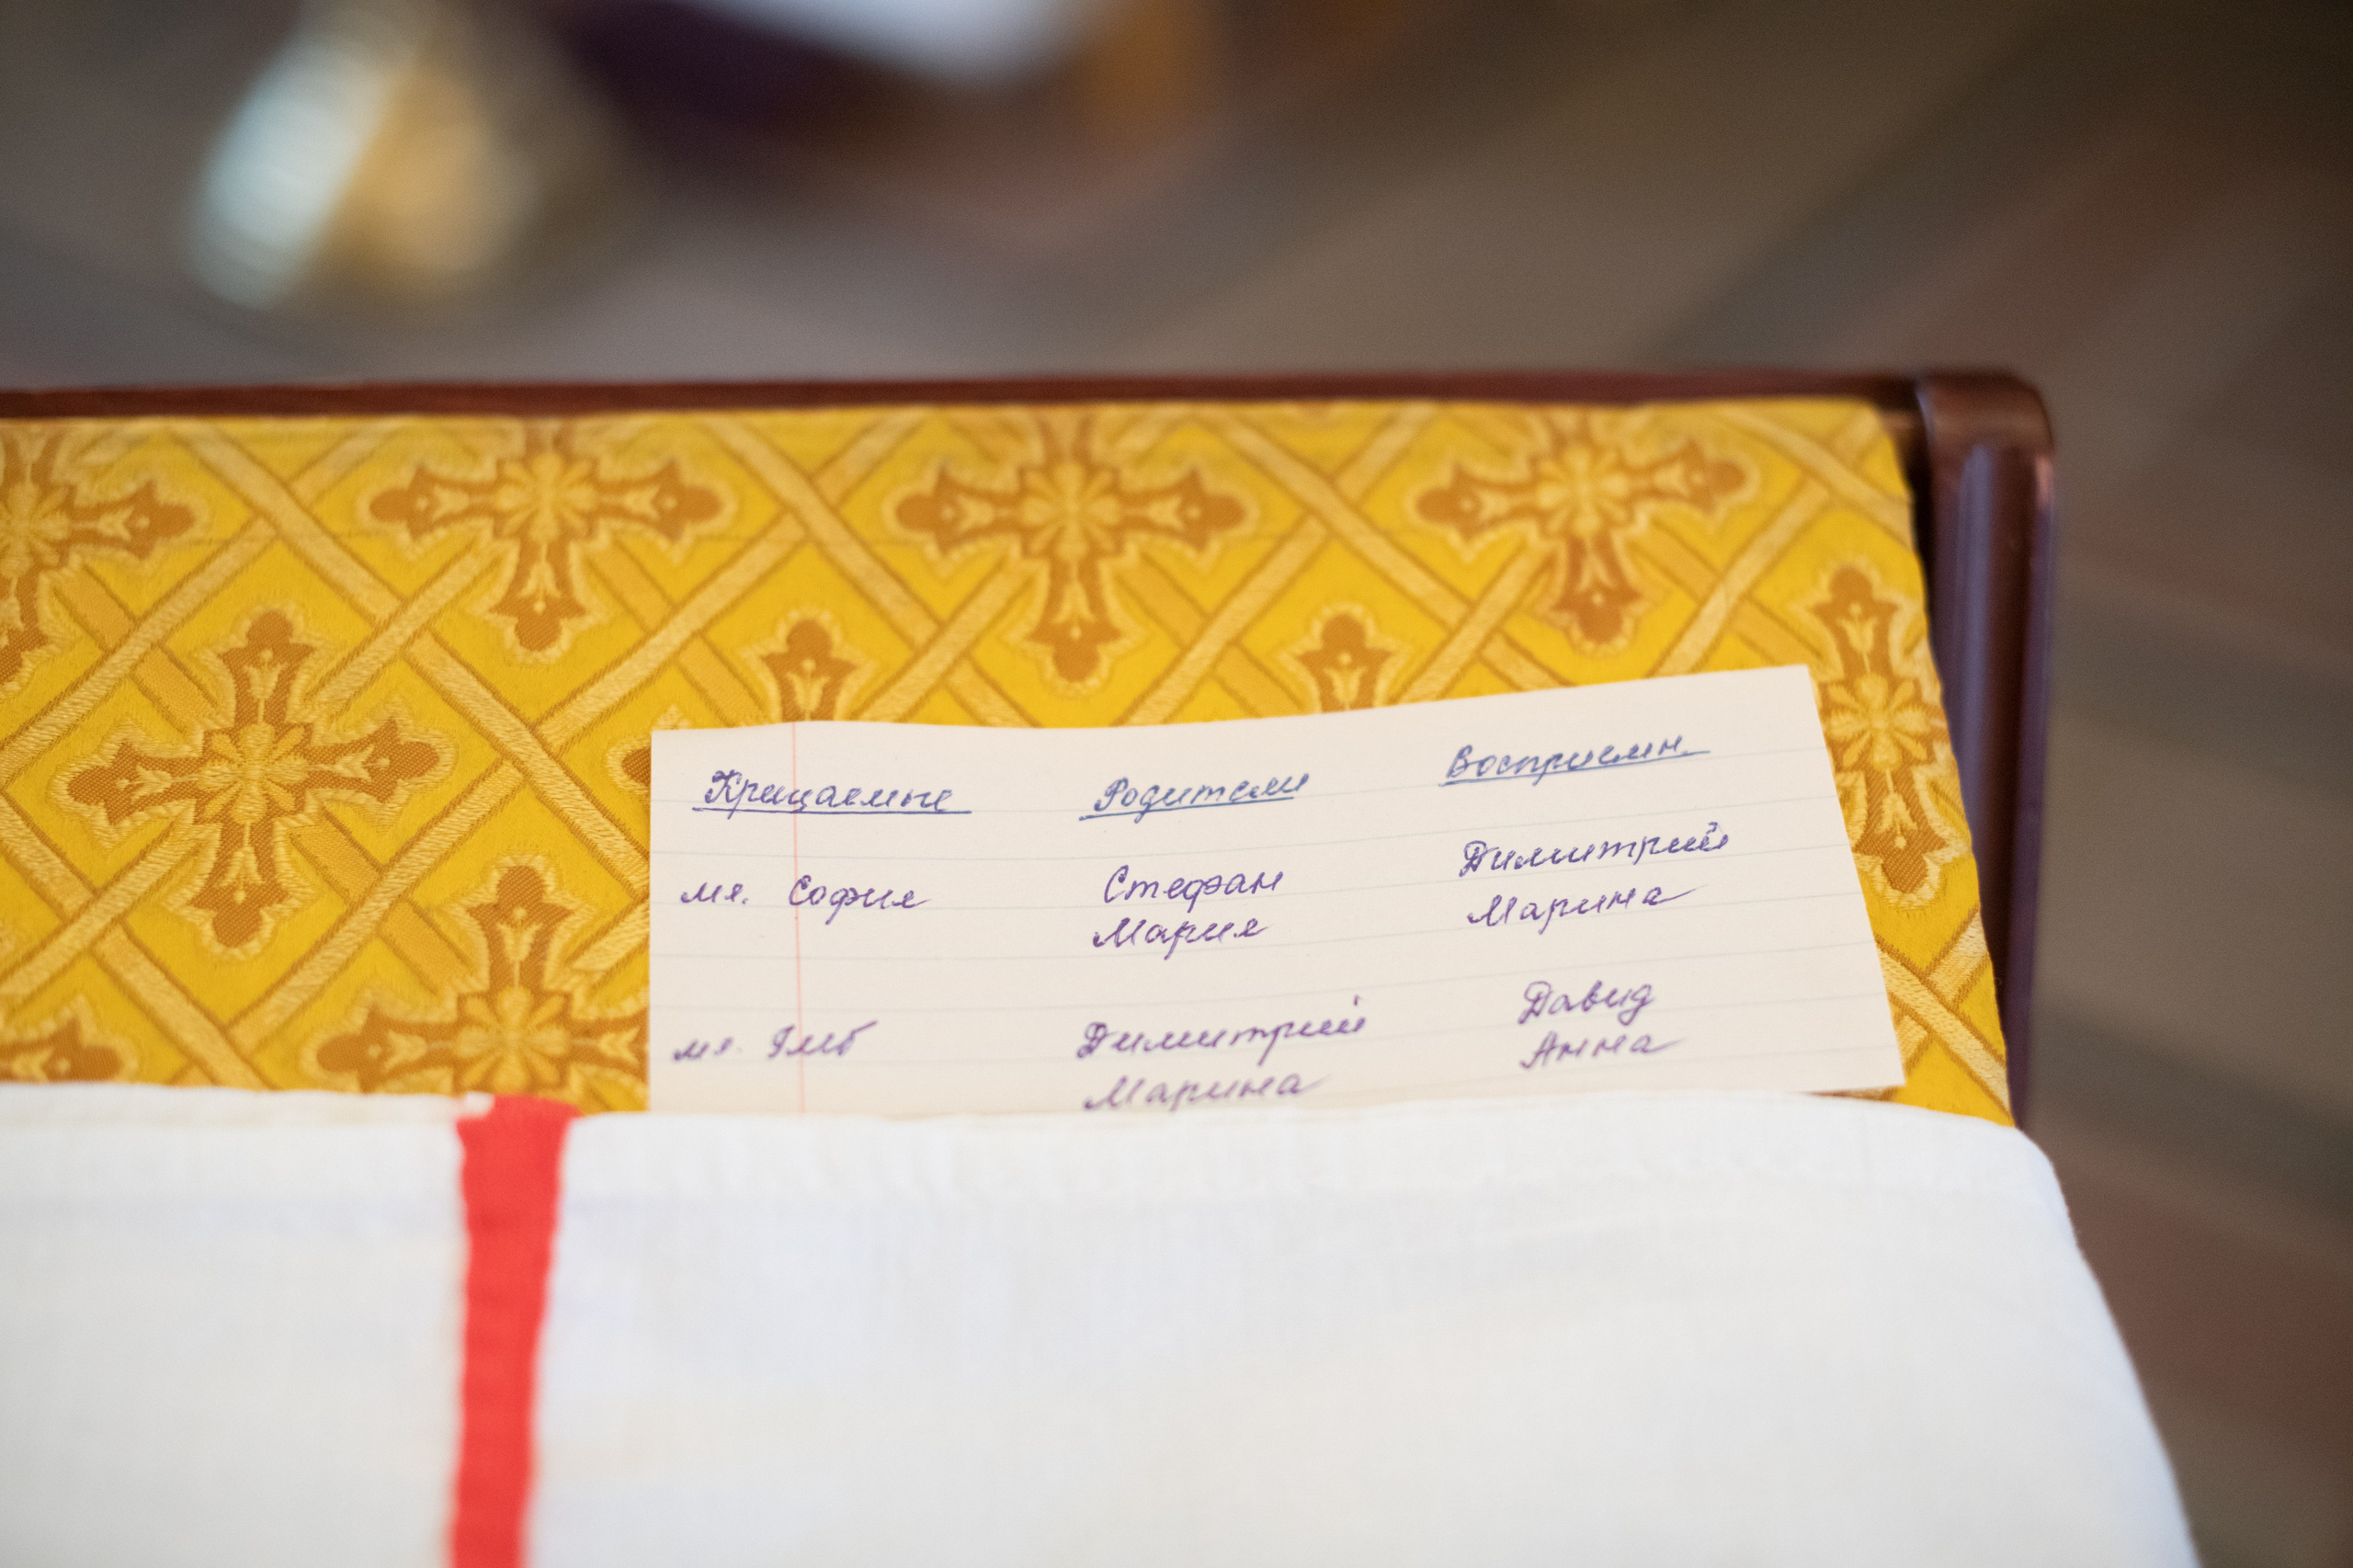 Крещаемые Родители Восприемн.
мл. София Стефан Димитрий
Мария Марина
мл. Глеб Димитрий Давид
Марина Анна